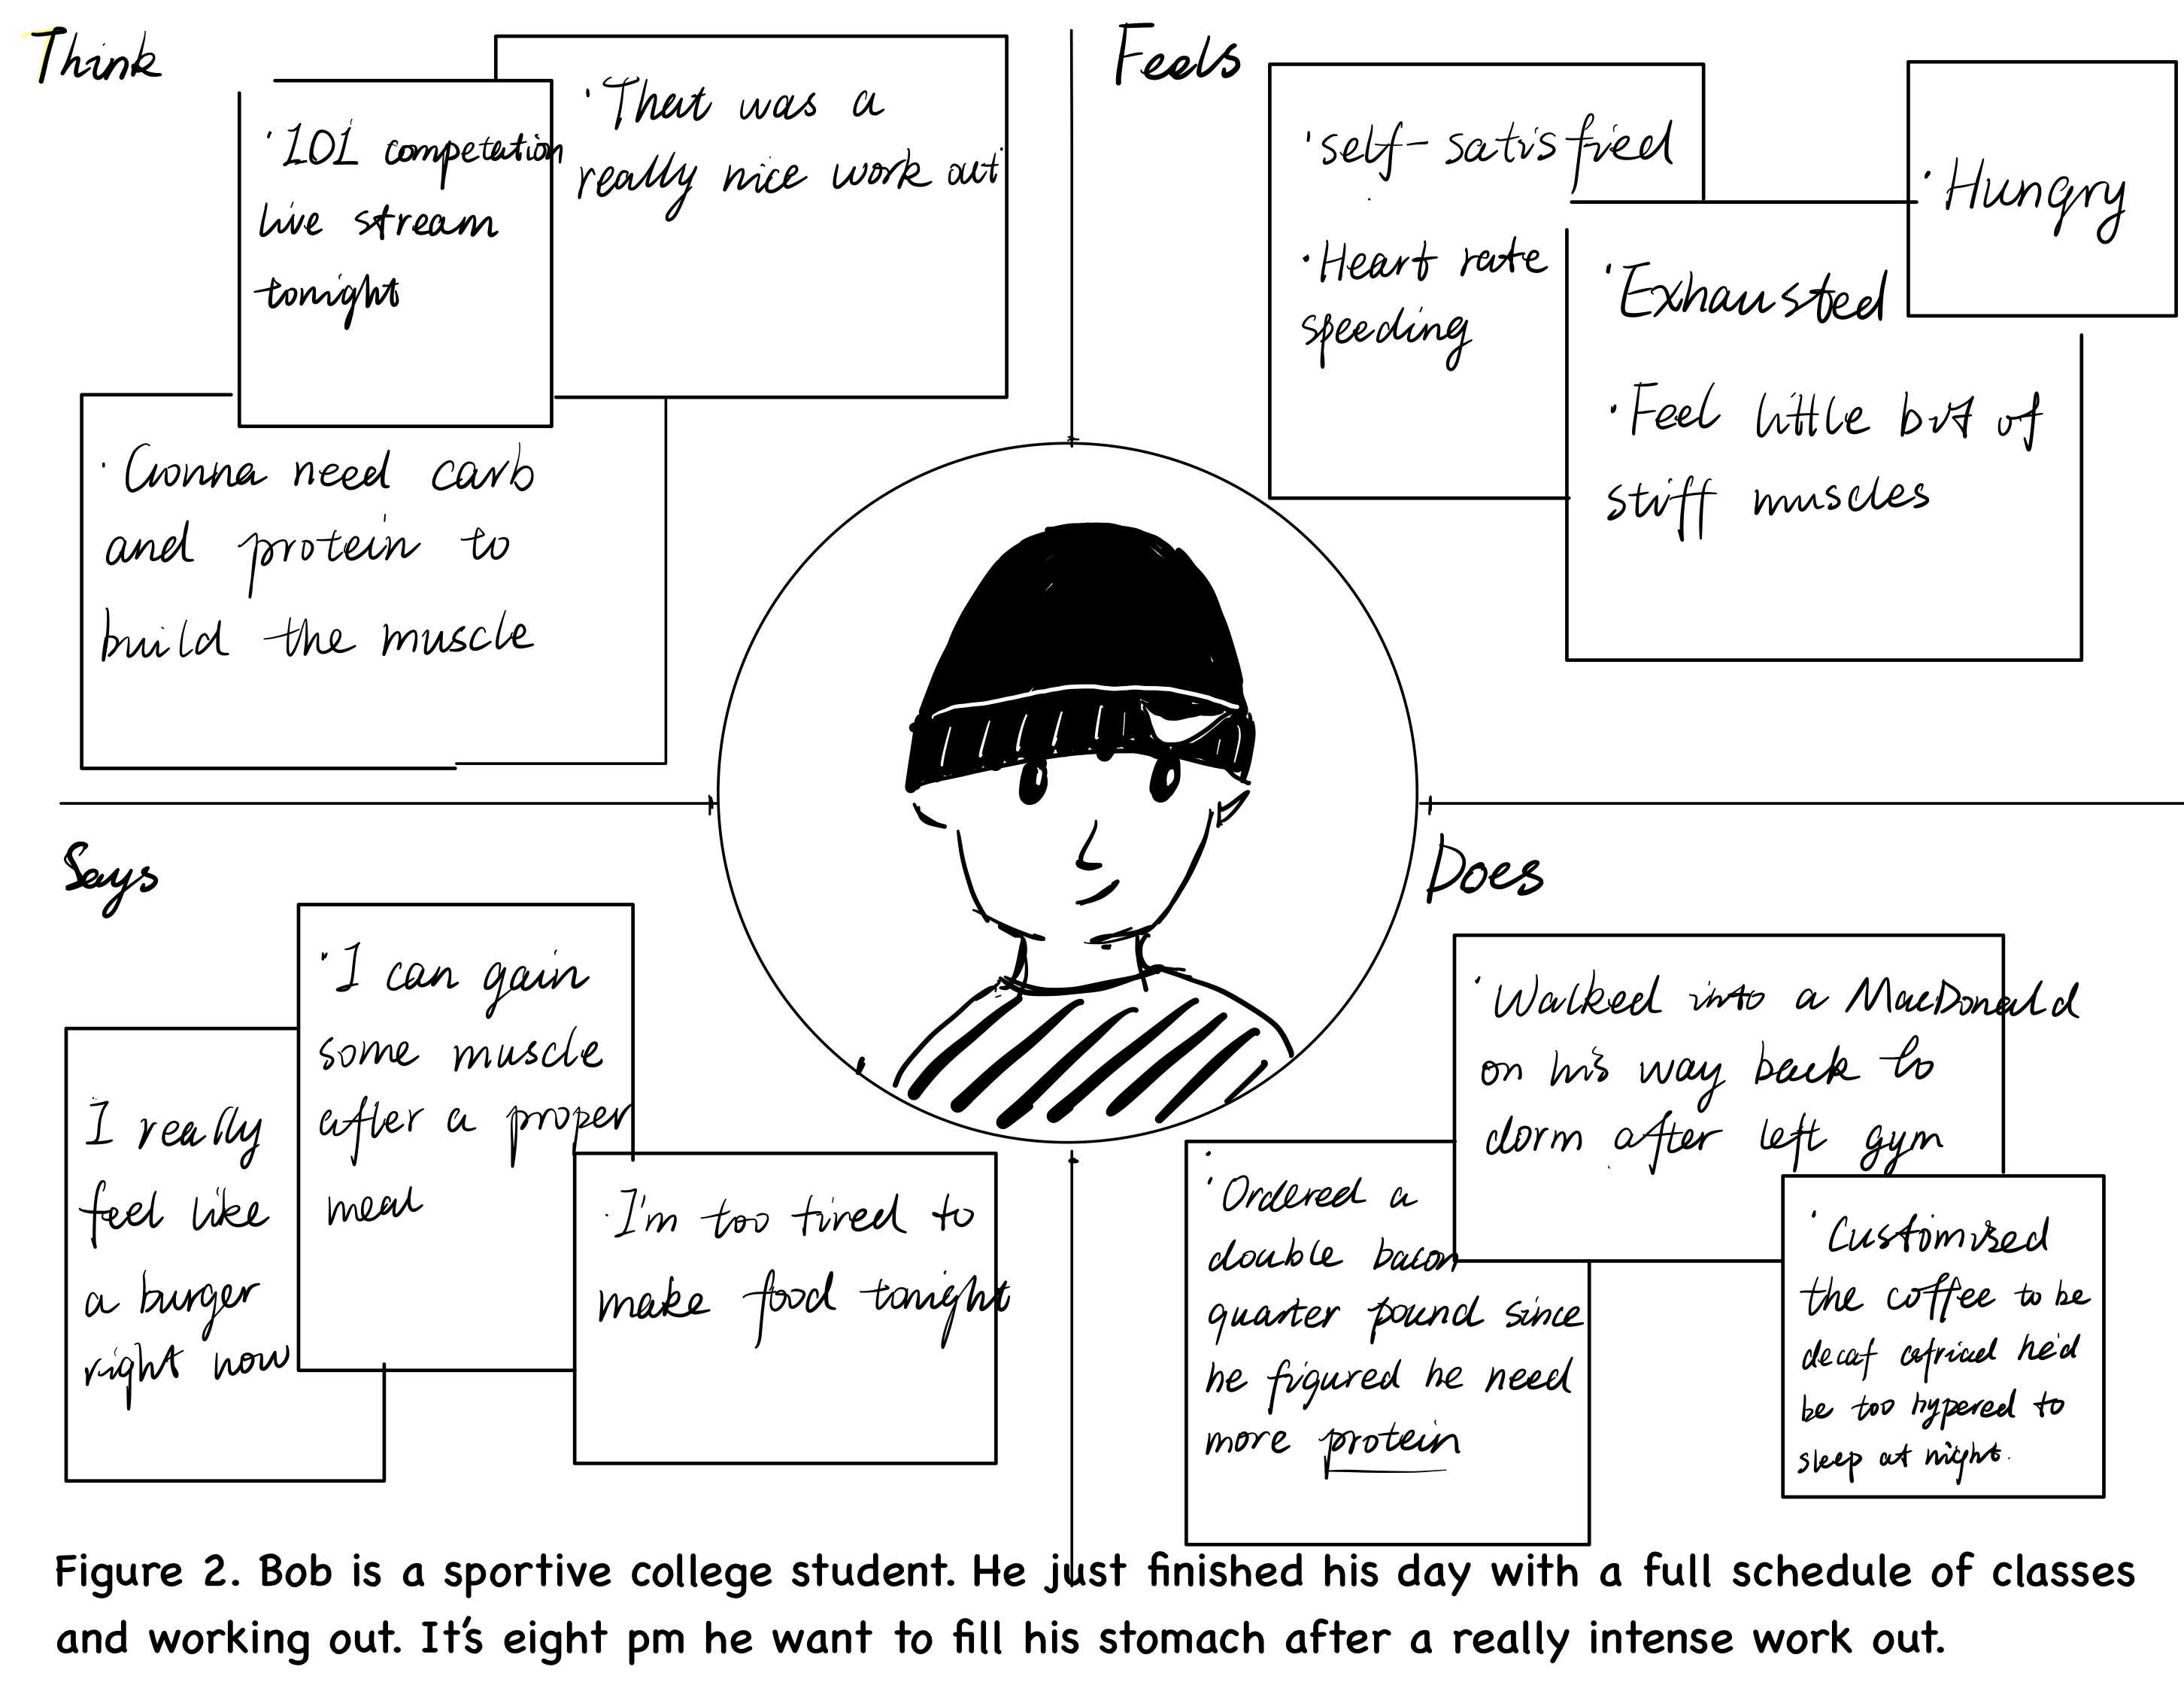 Think
· 101 competetion
live stream
tonight
· That was a
really nice work out
· Gonna need carb
and protein to
build the muscle
Feels
· self-satisfied
· Heart rate
speeding
· Hungry
· Exhausted
· Feel little bit of
stiff muscles
Says
I really
feel like
a burger
right now
· I can gain
some muscle
after a proper
meal
· I'm too tired to
make food tonight
Does
· Walked into a MacDonald
on his way back to
dorm after left gym
· Ordered a
double bacon
quarter pound since
he figured he need
more protein
· Customised
the coffee to be
decaf afriad he'd
be too hypered to
sleep at night.
Figure 2. Bob is a sportive college student. He just finished his day with a full schedule of classes
and working out. It's eight pm he want to fill his stomach after a really intense work out.